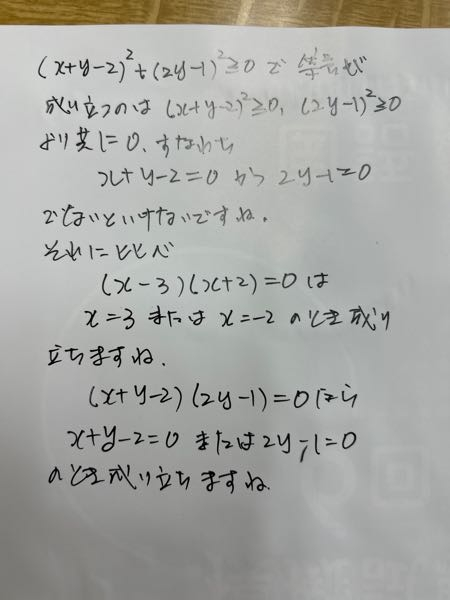 (x+y-2)²+(2y-1)²≥0 で 等号が
成り立つのは (x+y-2)²≥0, (2y-1)²≥0
より共に0. すなわち
x+y-2=0 かつ 2y-1=0
でないといけないですね.
それにくらべ
(x-3)(x+2)=0 は
x=3 または x=-2 のとき成り
立ちますね.
(x+y-2)(2y-1)=0 なら
x+y-2=0 または 2y-1=0
のとき成り立ちますね.